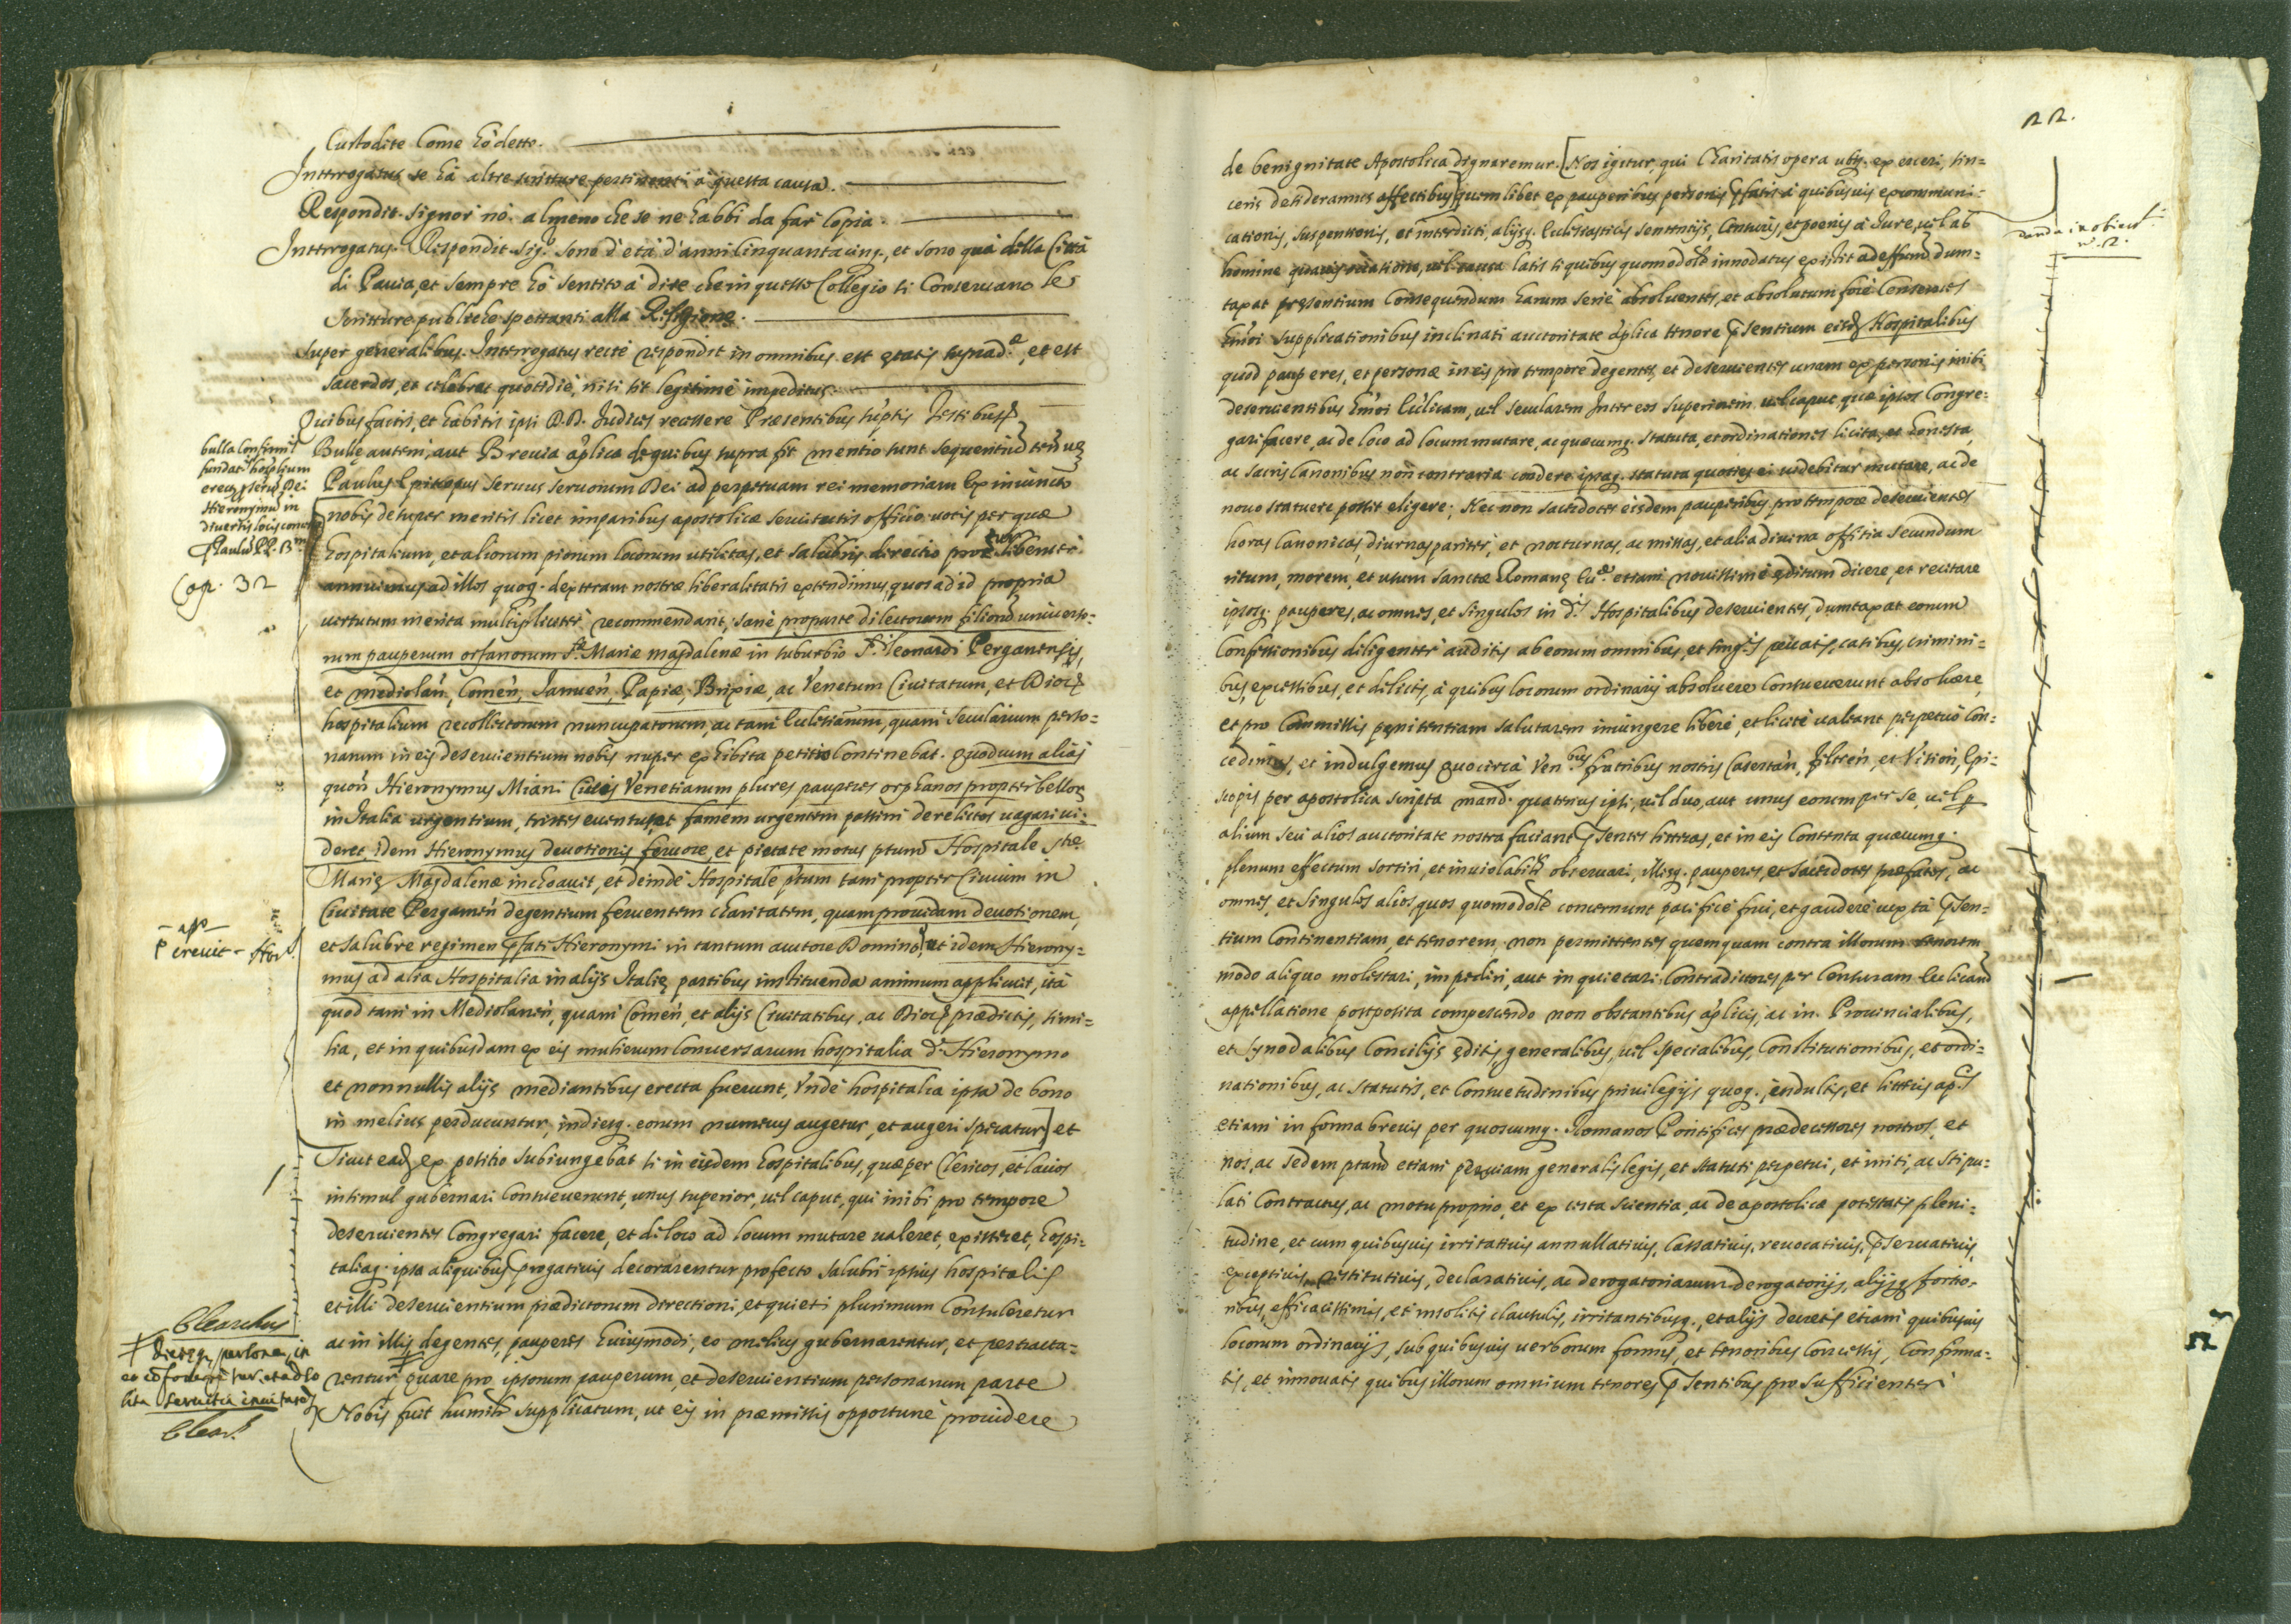 Custodite Come hò detto.
Interrogatus se hà altre scritture pertinenti à questa causa.
Respondit. Signor nò. almeno che se ne habbi da far Copia.
Interrogatus. Respondit. Sig.r sono d'età d'anni Cinquantacinq., et sono quà della Città
di Pavia, et sempre hò sentito à dire che in questo Collegio si Conservano le
scritture publiche spettanti alla Religione.
Super generalibus. Interrogatus recté respondit in omnibus est ętatis suprad.ę, et est
sacerdos, et celebrat quotidié, nisi sit legitimé impeditus.
Quibus factis, et habitis ipsi D.D. Judices recessere Praesentibus sup.tis Testibus
Bulle autem, aut Brevia ap.lica de quibus supra fit mentio sunt sequentiu~ ten.
Paulus Episcopus Servus servorum Dei ad perpetuam rei memoriam Ex iniuncto
nobis desuper meritis licet imparibus apostolicæ servitutis officio votis per quæ
hospitalium, et aliorum piorum locorum utilitas, et salubris directio libenter
annuimus ad illos quoq. dexteram nostræ liberalitatis extendimus, quos ad id propria
virtutum merita multipliciter recommendant, sané pro parte dilectorum filioru~ universo=
rum pauperum orfanorum S.tæ Mariæ magdalenæ in suburbio S.ti Leonardi Pergamensis,
et mediolan~, Comen~, Januen~, Papiæ, Brixiæ, ac Venetum Civitatum, et Dioc
hospitalium recollectorum nuncupatorum, ac tam Ecl.iarum, quam secularium perso=
narum in eis deservientium nobis nuper exhibita petitio continebat. quod cum alias
quon~ Hieronymus Miani Civis Venetiarum plures pauperes orphanos propter bellor
in Italia urgentium, tristes eventus, et famem urgentem passim derelictos vagari vi=
deret, idem Hieronymus devotionis fervore, et pietate motus p.tum Hospitale S.tæ
Marię Magdalenæ inchoavit, et deinde Hospitale p.tum tam propter Civium in
Civitate Pergamen~ degentium ferventem charitatem, quam providam devotionem,
et salubre regimen p.fati Hieronymi in tantum auctore Domino, et idem Hierony=
mus ad alia Hospitalia in alijs Italię partibus instituenda animum applicuit, ità
quod tam in Mediolanen~, quam Comen~, et alijs Civitatibus, ac Dioc prædictis, simi=
lia, et in quibusdam ex eis mulierum Conversarum hospitalia d.o Hieronymo
et nonnullis alijs mediantibus erecta fuerunt, Vnde hospitalia ipsa de bono
in melius perducuntur, indiesq. eorum numerus augetur, et augeri speratur] et
Sicut ead ex petitio subiungebat si in eisdem hospitalibus, quæ per Clericos, et laicos
insimul gubernari Consueverunt, unus superior, vel caput, qui inibi pro tempore
deservientes Congregari facere, et de loco ad locum mutare valeret, existeret, hospi=
taliaq. ipsa aliquibus p.rogativis decorarentur profecto salubri ipsius hospitalis
et illi deservientium prædictorum directioni, et quieti plurimum Consuleretur
ac in illis degentes, pauperes huiusmodi, eo melius gubernarentur, et pertracta=
rentur quare pro ipsorum pauperum, et deservientium personarum parte
Nobis fuit humilr supplicatum, ut eis in præmissis opportuné providere
bulla Confirm.s
fundat.s hosp.lium
erect. p. servu~ Dei
Hieronymu~ in
diversis locis
Paulus PP.
Cap. 32
- ass
P crevit - Hier.
Clearchus
Clear.
22.
de benignitate Apostolica dignaremur. [Nos igitur, qui Charitatis opera ubiq. exerceri, sin=
ceris desideramus affectibus] quemlibet ex pauperibus personis p.fatis à quibusvis excommuni=
cationis, suspensionis, et interdicti, alijsq. Ecclesiasticis sententijs, Censuris, et poenis à Jure, vel ab
homine quavis occasione, vel causa latis si quibus quomodolt innodatus existit ad effectum dum=
taxat præsentium Consequendum harum serie absolventes, et absolutum fore Censentes
hmoi supplicationibus inclinati auctoritate ap.lica tenore p.sentium eisd Hospitalibus
quod pauperes, et personæ in eis pro tempore degentes, et deservientes unam ex personis inibi
deservientibus hmoi Ecl.icam, vel secularem Inter eos superiorem vel caput, quæ ipsos Congre=
gari facere, ac de loco ad locum mutare, ac quæcumq. statuta, et ordinationes licita, et honesta
ac sacris Canonibus non contraria condere ipsaq. statuta quoties ei videbitur mutare, ac de
novo statuere possit eligere; Nec non sacerdotes eisdem pauperibus pro tempore deservientes
horas Canonicas, diurnas pariter, et nocturnas, ac missas, et alia divina offitia secundum
ritum, morem, et usum sanctæ Romanę Eccl.æ etiam novissimé ęditum dicere, et recitare
ipsosq. pauperes, ac omnes, et singulos in d.is Hospitalibus deservientes, dumtaxat eorum
Confessionibus diligenter auditis ab eorum omnibus, et sing.is peccatis, casibus, crimini=
bus, excessibus, et delictis, à quibus locorum ordinarij absolvere Consueverunt absolvere,
et pro Commissis pęnitentiam salutarem iniungere liberé, et licité valeant perpetuó Con=
cedimus, et indulgemus quocircà Ven.bus fratribus nostris Casertan~, feltren~, et Vition~, Epi=
scopis per apostolica scripta mand. quatenus ipsi, vel duo, aut unus eorum per se, vel p
alium seu alios auctoritate nostra faciant p.sentes litteras, et in eis Contenta quæcumq.
plenum effectum sortiri, et inviolabilr observari, illisq. pauperes, et Sacerdotes præfatos, ac
omnes, et singulos alios quos quomodolt concernunt pacificé frui, et gaudere iuxtà p.sen=
tium Continentiam, et tenorem, non permittentes quemquam contra illorum tenorem
modo aliquo molestari, impediri, aut inquietari. Contradictores per Censuram Ecl.icam
appellatione postposita compescendo non obstantibus ap.licis, ac in Provincialibus,
et Synodalibus Concilijs ęditis generalibus, vel specialibus, Constitutionibus, et ordi=
nationibus, ac statutis, et Consuetudinibus privilegijs quoq. indultis, et litteris ap.cis
etiam in forma brevis per quoscumq. Romanos Pontifices prædecessores nostros, et
nos, ac sedem p.tam etiam per viam generalis legis, et statuti perpetui, et initi, ac stipu=
lati Contractus, ac motu proprio, et ex certa scientia, ac de apostolicæ potestatis pleni=
tudine, et cum quibusvis irritativis annullativis, Cassativis, revocativis, p.servativis,
exceptivis restitutivis, declarativis, ac derogatoriarum derogatorijs, alijsq. fortio=
ribus, efficacissimis, et insolitis clausulis, irritantibusq., et alijs decretis etiam quibusvis
locorum ordinarijs, sub quibusvis verborum formis, et tenoribus Concessis, Confirma=
tis, et innovatis quibus illorum omnium tenores p.sentibus pro sufficienter